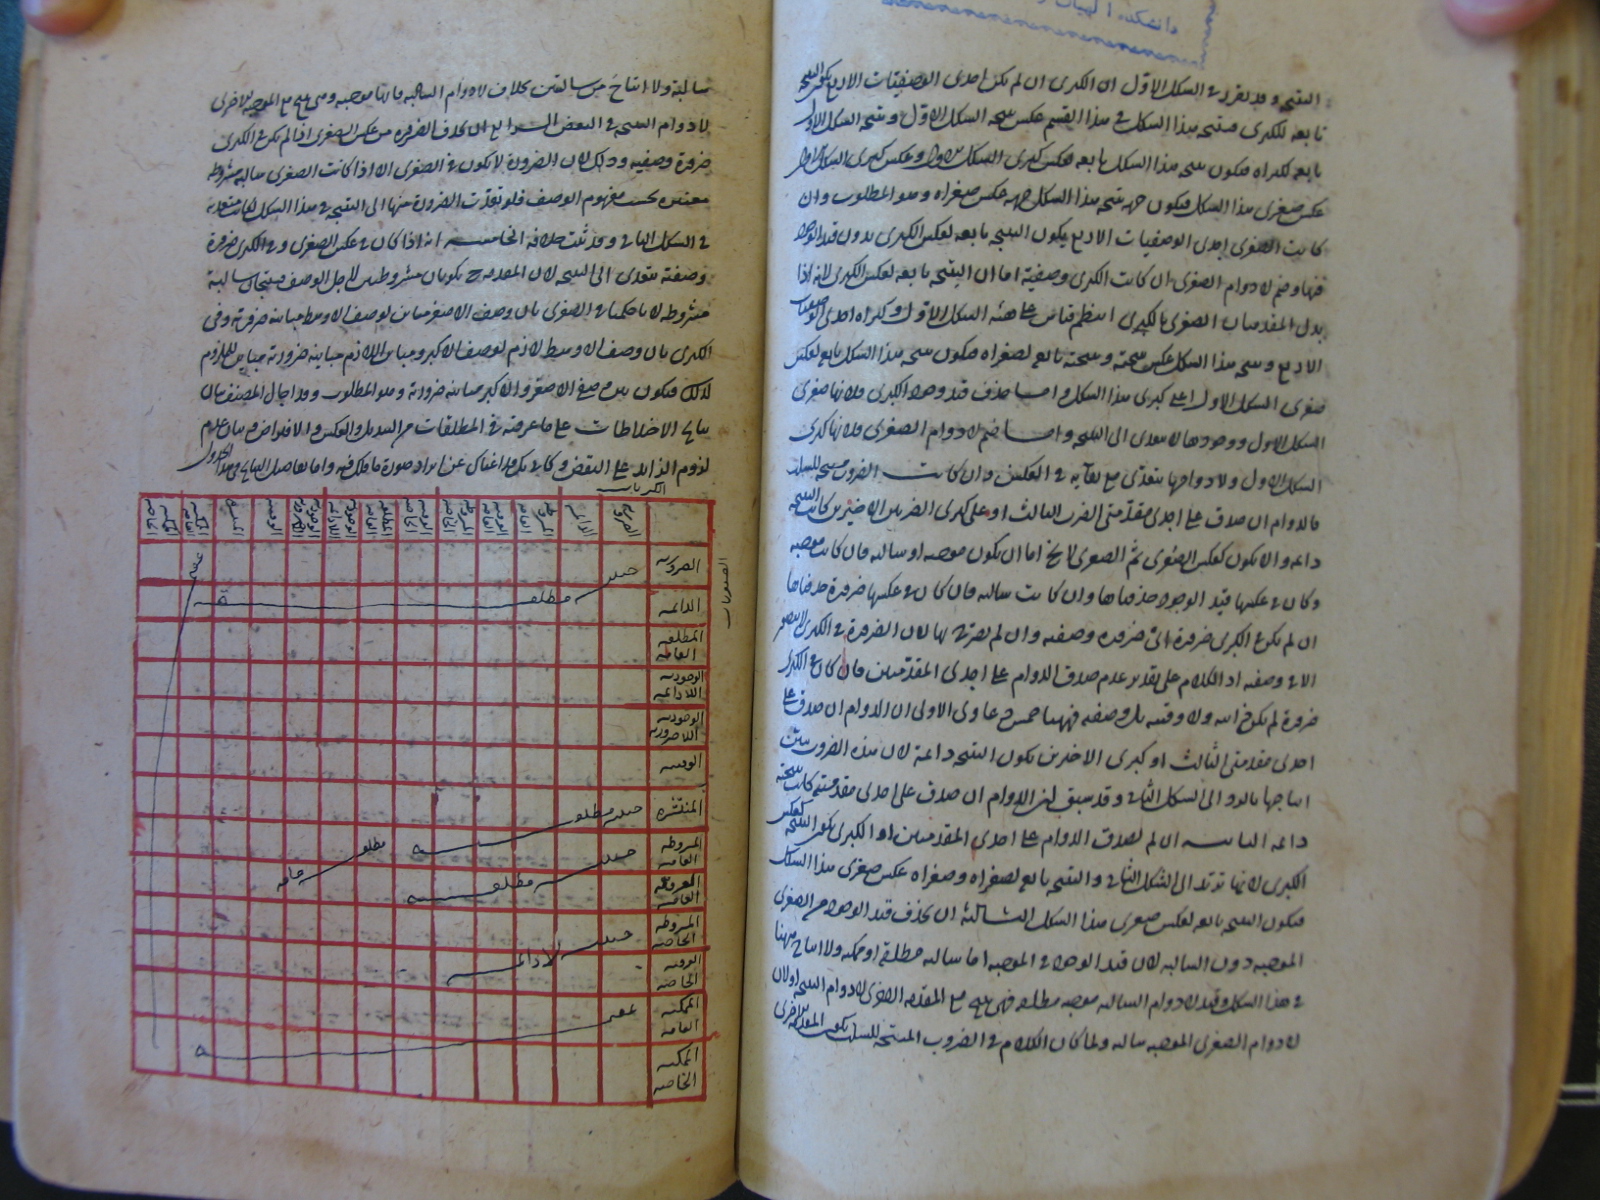 النتيجة وقد تقرر في الشكل الاول ان الكبرى ان لم تكن احدى الوصفيات الاربع يكون النتيجة
تابعة للكبرى فنتيجة هذا الشكل في هذا القسم عكس نتيجة الشكل الاول ونتيجة الشكل الاول
تابعة لكبراه فيكون نتيجة هذا الشكل تابعة لعكس كبرى الشكل الاول وعكس كبرى الشكل الاول
عكس صغرى هذا الشكل فيكون جهة نتيجة هذا الشكل جهة عكس صغراه وهو المطلوب وان
كانت الصغرى احدى الوصفيات الاربع يكون النتيجة تابعة لعكس الكبرى بدون قيد الوجود
فيها وضم لادوام الصغرى ان كانت الكبرى وصفية اما ان النتيجة تابعة لعكس الكبرى لانه اذا
بدل المقدمتان الصغرى بالكبرى انتظم قياس على هيئة الشكل الاول وكبراه احدى الوصفيات
الاربع ونتيجة هذا الشكل عكس نتيجته ونتيجته تابع لصغراه فيكون نتيجة هذا الشكل تابع لعكس
صغرى الشكل الاول اعني كبرى هذا الشكل واما حذف قيد وجود الكبرى فلانها صغرى
الشكل الاول ووجودها لا يتعدى الى النتيجة واما ضم لادوام الصغرى فلانها كبرى
الشكل الاول ولادوامها يتعدى مع بقائه في العكس وان كانت الضروب منتجة للسلب
فالدوام ان صدق على احدى مقدمتي الضرب الثالث او على كبرى الضربين الاخيرين كانت النتيجة
دائمة والا يكون كعكس الصغرى ثم الصغرى لا يخ اما ان يكون موجبة او سالبة فان كانت موجبة
وكان في عكسها قيد الوجود حذفناها وان كانت سالبة فان كان في عكسها ضرورة حذفناها
ان لم يكن في الكبرى ضرورة اي ضرورة وصفية وان لم نصرح بها لان الضرورة في الكبرى لا يتصور
الا في وصفية اذ الكلام على تقدير عدم صدق الدوام على احدى المقدمتين فان كان في الكبرى
ضرورة لم يكن ذاتية ولا وقتية بل وصفية فههنا خمس دعاوى الاولى ان الدوام ان صدق على
احدى مقدمتي الثالث او كبرى الاخرين يكون النتيجة دائمة لان هذه الضروب يتبين
انتاجها بالرد الى الشكل الثاني وقد سبق ان الدوام ان صدق على احدى مقدمتيه كانت نتيجته
دائمة الثانية ان لم يصدق الدوام على احدى المقدمتين او الكبرى يكون النتيجة كعكس
الكبرى لانها ترتد الى الشكل الثاني والنتيجة تابع لصغراه وصغراه عكس صغرى هذا الشكل
فيكون النتيجة تابعة لعكس صغرى هذا الشكل الثالثة ان يحذف قيد الوجود من الصغرى
الموجبة دون السالبة لان قيد الوجود في الموجبة اما سالبة مطلقة او ممكنة ولا انتاج منهما
في هذا الشكل وقيد لادوام السالبة موجبة مطلقة فهي ينتج مع المقدمة الاخرى لادوام النتيجة اولان
لادوام الصغرى الموجبة سالبة ولما كان الكلام في الضروب المنتجة للسلب يكون المقدمة الاخرى
سالبة ولا انتاج من سالبتين بخلاف لادوام السالبة فانها موجبة وهي ينتج مع الموجبة الاخرى
لادوام النتيجة في البعض الرابع ان يحذف الضرورة من عكس الصغرى اذا لم يكن في الكبرى
ضرورة وصفية وذلك لان الضرورة لا يكون في الصغرى الا اذا كانت الصغرى سالبة مشروطة
معتبرة بحسب مفهوم الوصف فلو تعدت الضرورة منها الى النتيجة في هذا الشكل لكانت متعدية
في الشكل الثاني وقد ثبت خلافه الخامسة انه اذا كان في عكس الصغرى وفي الكبرى ضرورة
وصفية يتعدى الى النتيجة لان المقدمتين ح يكونان مشروطتين لاجل الوصف فينتجان سالبة
مشروطة لانا حكمنا في الصغرى بان وصف الاصغر مباين لوصف الاوسط مباينة ضرورية وفي
الكبرى بان وصف الاوسط لازم لوصف الاكبر ومباين اللازم مباينة ضرورية مباين للملزوم
كذلك فيكون بين وصفي الاصغر والاكبر مباينة ضرورية وهو المطلوب وقد احال المصنف بيان
نتائج الاختلاطات على ما عرفته في المطلقات من التبديل والعكس والافتراض وبيان عدم
لزوم الزائد على النقض وكان بك قد اغناك عن ايراد صورة ما فلكفه واما تفاصيل النتائج في هذا الجدول
الكبريات
الصغريات
الضرورية
الدائمة
المشروطة العامة
العرفية العامة
المشروطة الخاصة
العرفية الخاصة
المطلقة العامة
الوجودية اللادائمة
الوجودية اللاضرورية
الوقتية
المنتشرة
الممكنة العامة
الممكنة الخاصة
الضرورية
الدائمة
المطلقة العامة
الوجودية اللادائمة
الوجودية اللاضرورية
الوقتية
المنتشرة
المشروطة العامة
العرفية العامة
المشروطة الخاصة
العرفية الخاصة
الممكنة العامة
الممكنة الخاصة
حينية مطلقة
عقيم
حينية مطلقة
مطلقة عامة
حينية مطلقة
حينية لادائمة
عقيمة